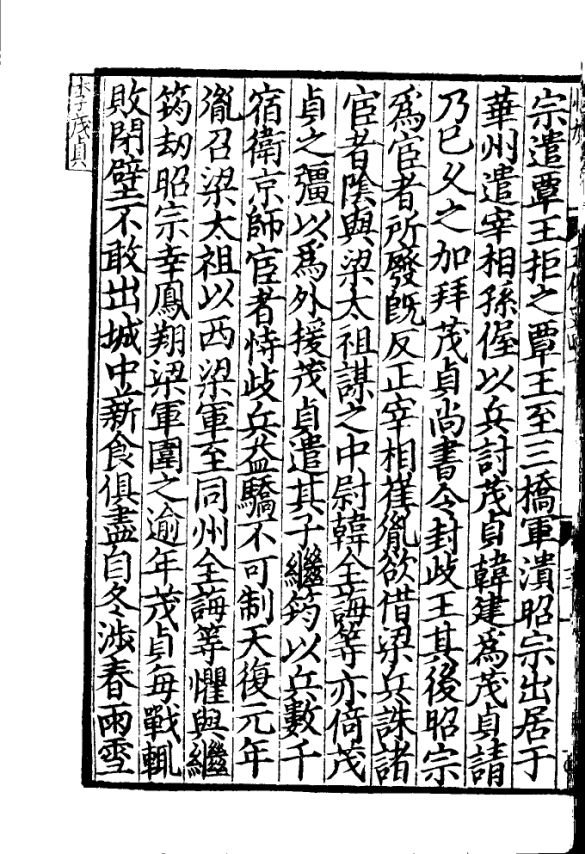 宗遣覃王拒之覃王至三橋軍潰昭宗出居于
華州遣宰相孫偓以兵討茂貞韓建為茂貞請
乃已久之加拜茂貞尚書令封歧王其後昭宗
為宦者所廢旣反正宰相崔胤欲借梁兵誅諸
宦者隂與梁太祖謀之中尉韓全誨等亦倚茂
貞之彊以為外援茂貞遣其子繼筠以兵數千
宿衛京師宦者恃歧兵益驕不可制天復元年
胤召梁太祖以西梁軍至同州全誨等懼與繼
筠劫昭宗幸鳳翔梁軍圍之逾年茂貞每戰輒
敗閉壁不敢出城中薪食俱盡自冬涉春雨雪
李茂貞